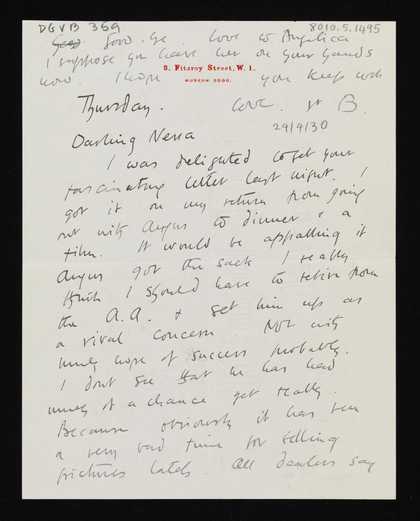 DGVB 369
8010.5.1495
love to Angelica
I suppose you have her on your hands
now. I hope you keep well
8. Fitzroy Street, W. 1.
MUSEUM
Thursday.
Love. B.
29/9/30
Darling Nessa
I was delighted to get your
fascinating letter last night. I
got it on my return from going
out with Angus to dinner & a
film. It would be appalling if
Angus got the sack. I really
think I should have to retire from
the A.A. & set him up as
a rival concern. Not with
much hope of success probably.
I dont see that he has had
much of a chance yet really.
Because obviously it has been
a very bad time for selling
pictures lately. All dealers say